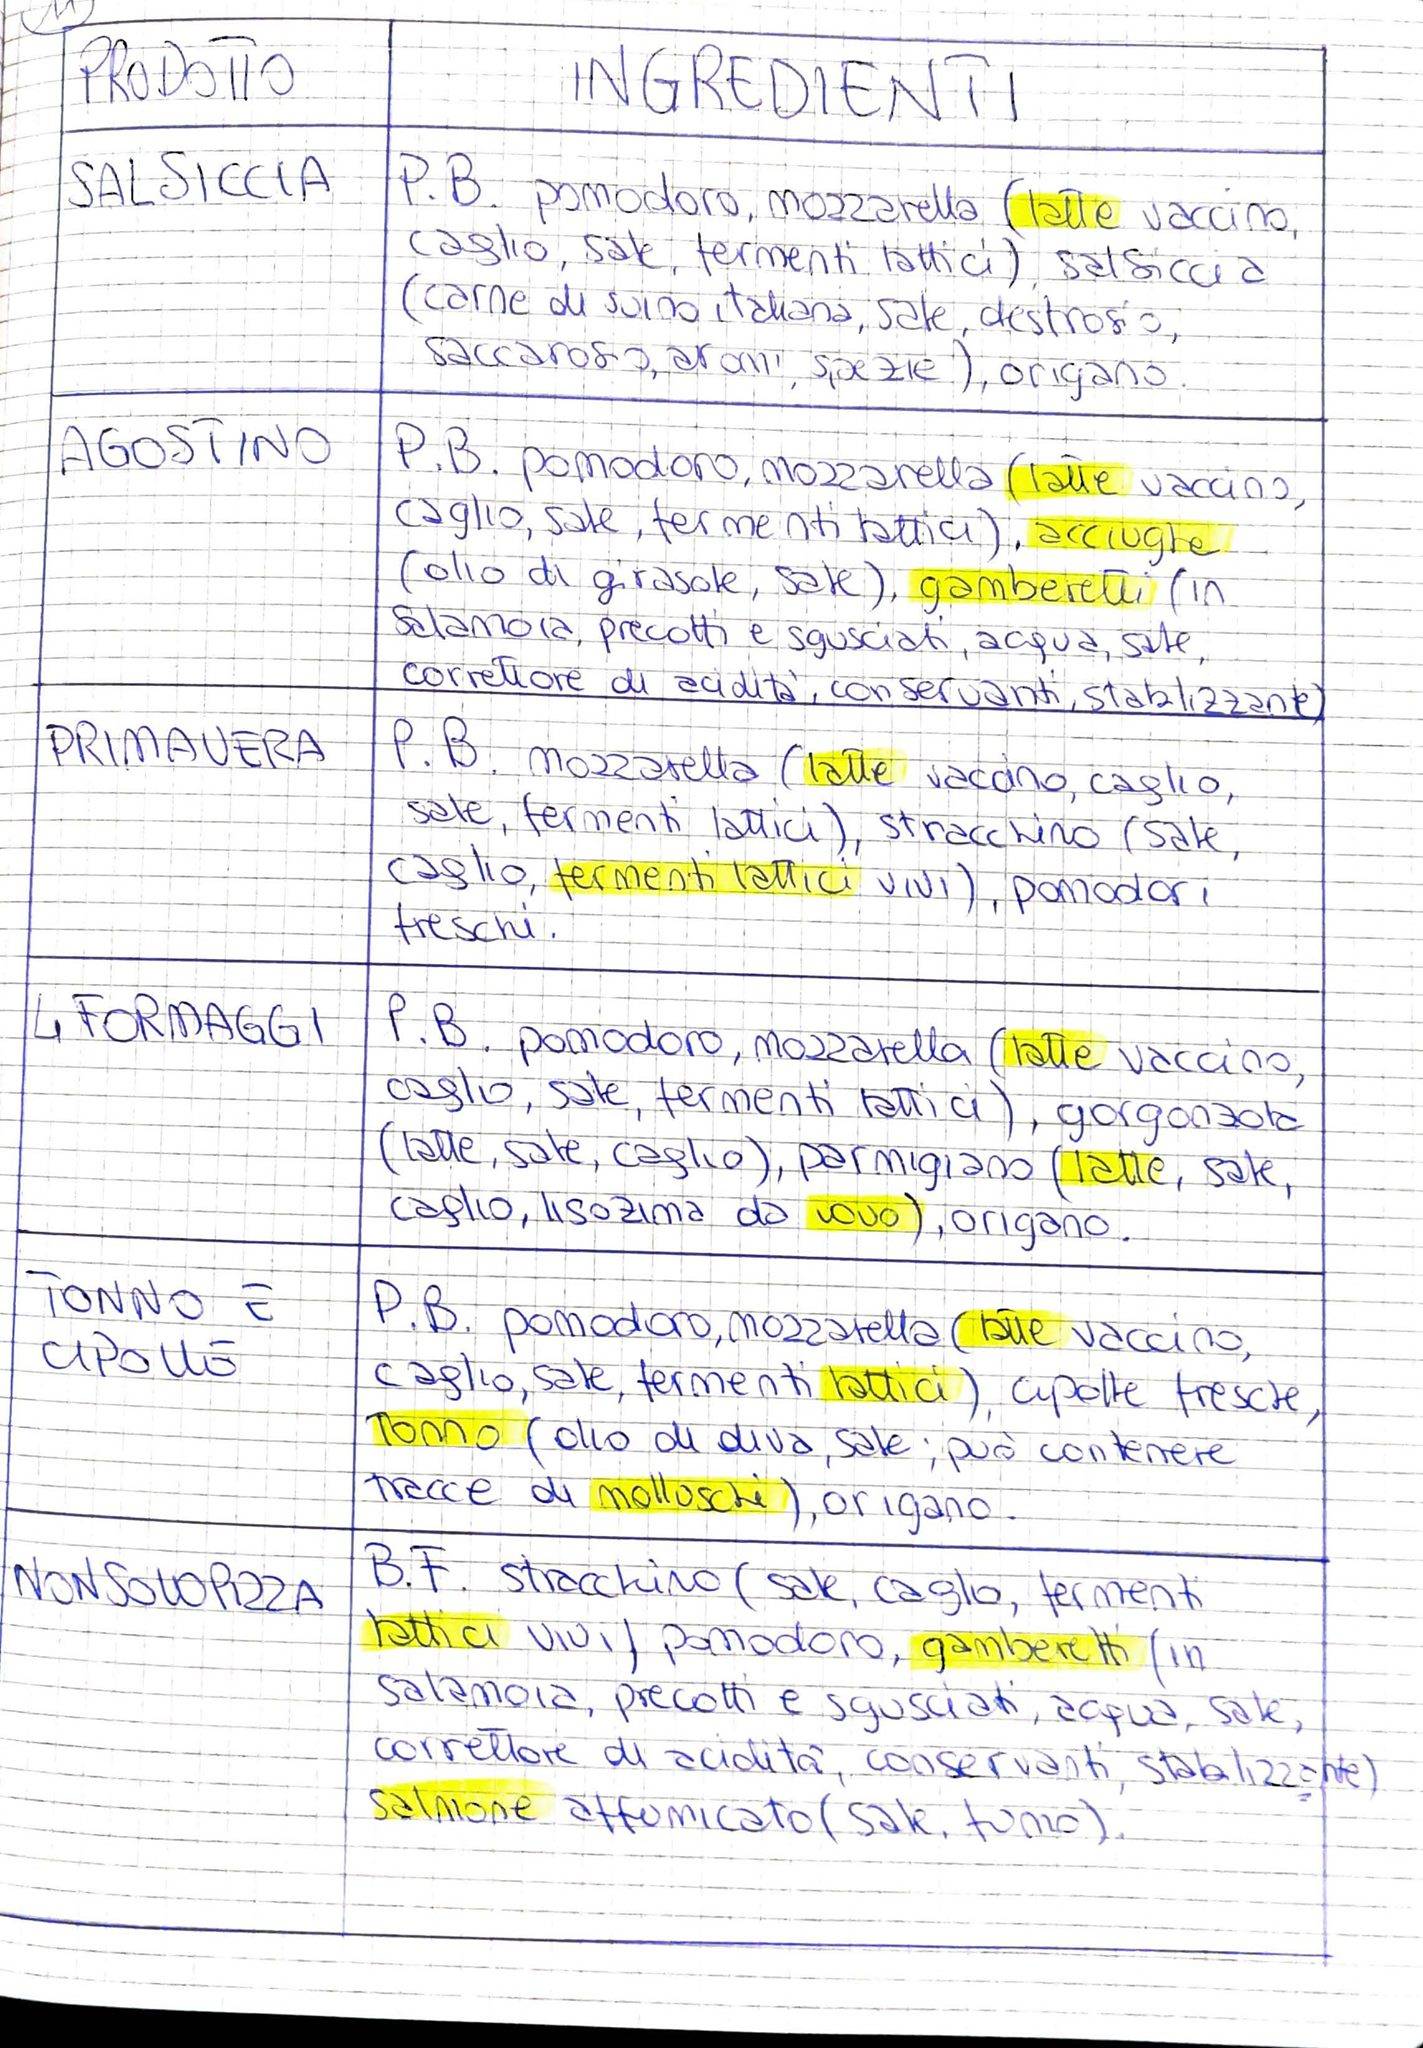 11
PRODOTTO
INGREDIENTI
SALSICCIA
P.B. pomodoro, mozzarella (latte vaccino,
caglio, sale, fermenti lattici) salsiccia
(carne di suino italiana, sale, destrosio,
saccarosio, aromi, spezie), origano.
AGOSTINO
P.B. pomodoro, mozzarella (latte vaccino,
caglio, sale, fermenti lattici), acciughe
(olio di girasole, sale), gamberetti (in
salamoia, precotti e sgusciati, acqua, sale,
correttore di acidità, conservanti, stabilizzante)
PRIMAVERA
P.B. mozzarella (latte vaccino, caglio,
sale, fermenti lattici), stracchino (sale,
caglio, fermenti lattici vivi), pomodori
freschi.
4 FORMAGGI
P.B. pomodoro, mozzarella (latte vaccino,
caglio, sale, fermenti lattici), gorgonzola
(latte, sale, caglio), parmigiano (latte, sale,
caglio, lisozima da uovo), origano.
TONNO E
CIPOLLE
P.B. pomodoro, mozzarella (latte vaccino,
caglio, sale, fermenti lattici), cipolle fresche,
Tonno (olio di oliva, sale; può contenere
tracce di molluschi), origano.
NONSOLOPIZZA
B.F. stracchino (sale, caglio, fermenti
lattici vivi) pomodoro, gamberetti (in
salamoia, precotti e sgusciati, acqua, sale,
correttore di acidità, conservanti, stabilizzante)
salmone affumicato (sale, fumo).